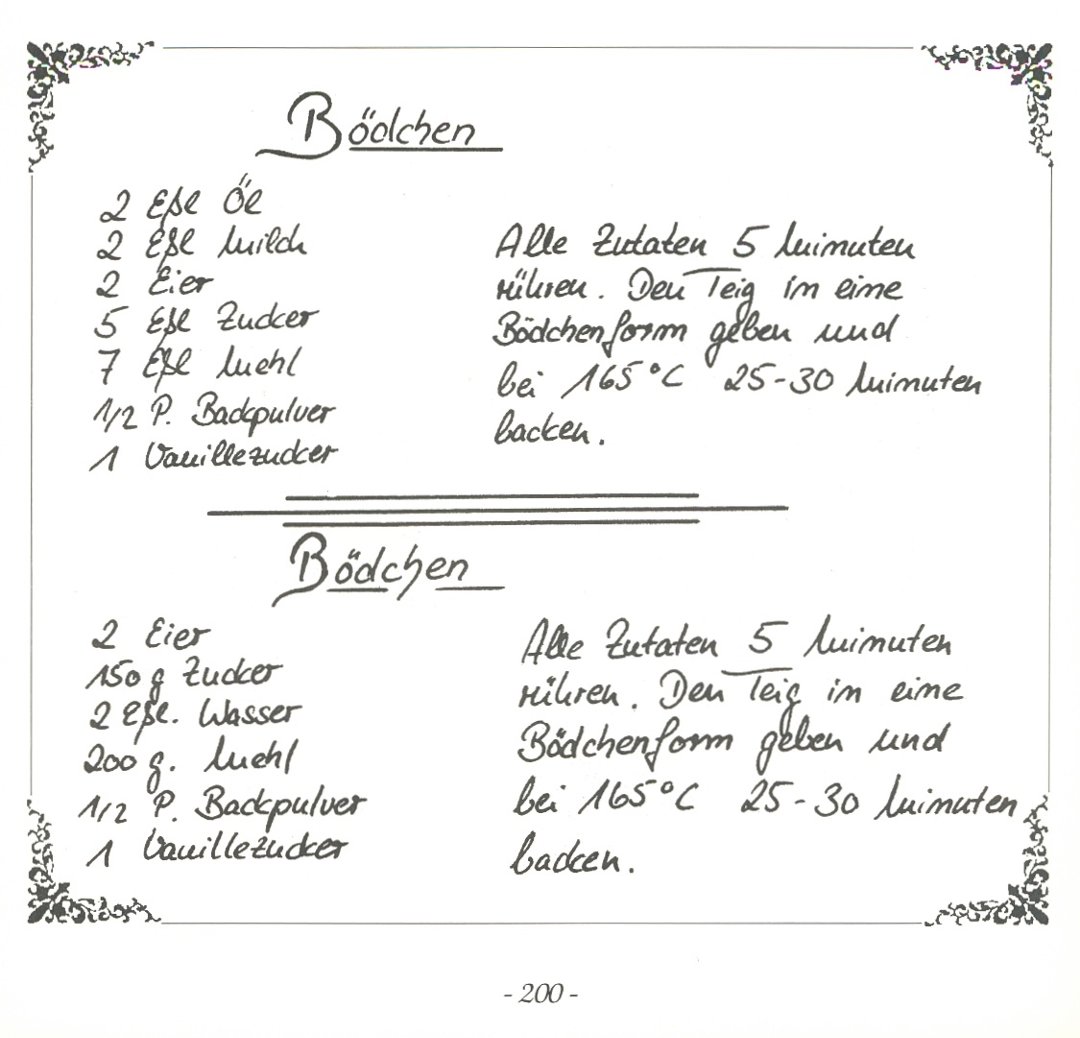 Bödchen
2 Eßl Öl
2 Eßl Milch
2 Eier
5 Eßl Zucker
7 Eßl Mehl
1/2 P. Backpulver
1 Vanillezucker
Alle Zutaten 5 Minuten
rühren. Den Teig in eine
Bödchenform geben und
bei 165°C 25-30 Minuten
backen.
Bödchen
2 Eier
150 g Zucker
2 Eßl. Wasser
200 g. Mehl
1/2 P. Backpulver
1 Vanillezucker
Alle Zutaten 5 Minuten
rühren. Den Teig in eine
Bödchenform geben und
bei 165°C 25-30 Minuten
backen.
- 200 -